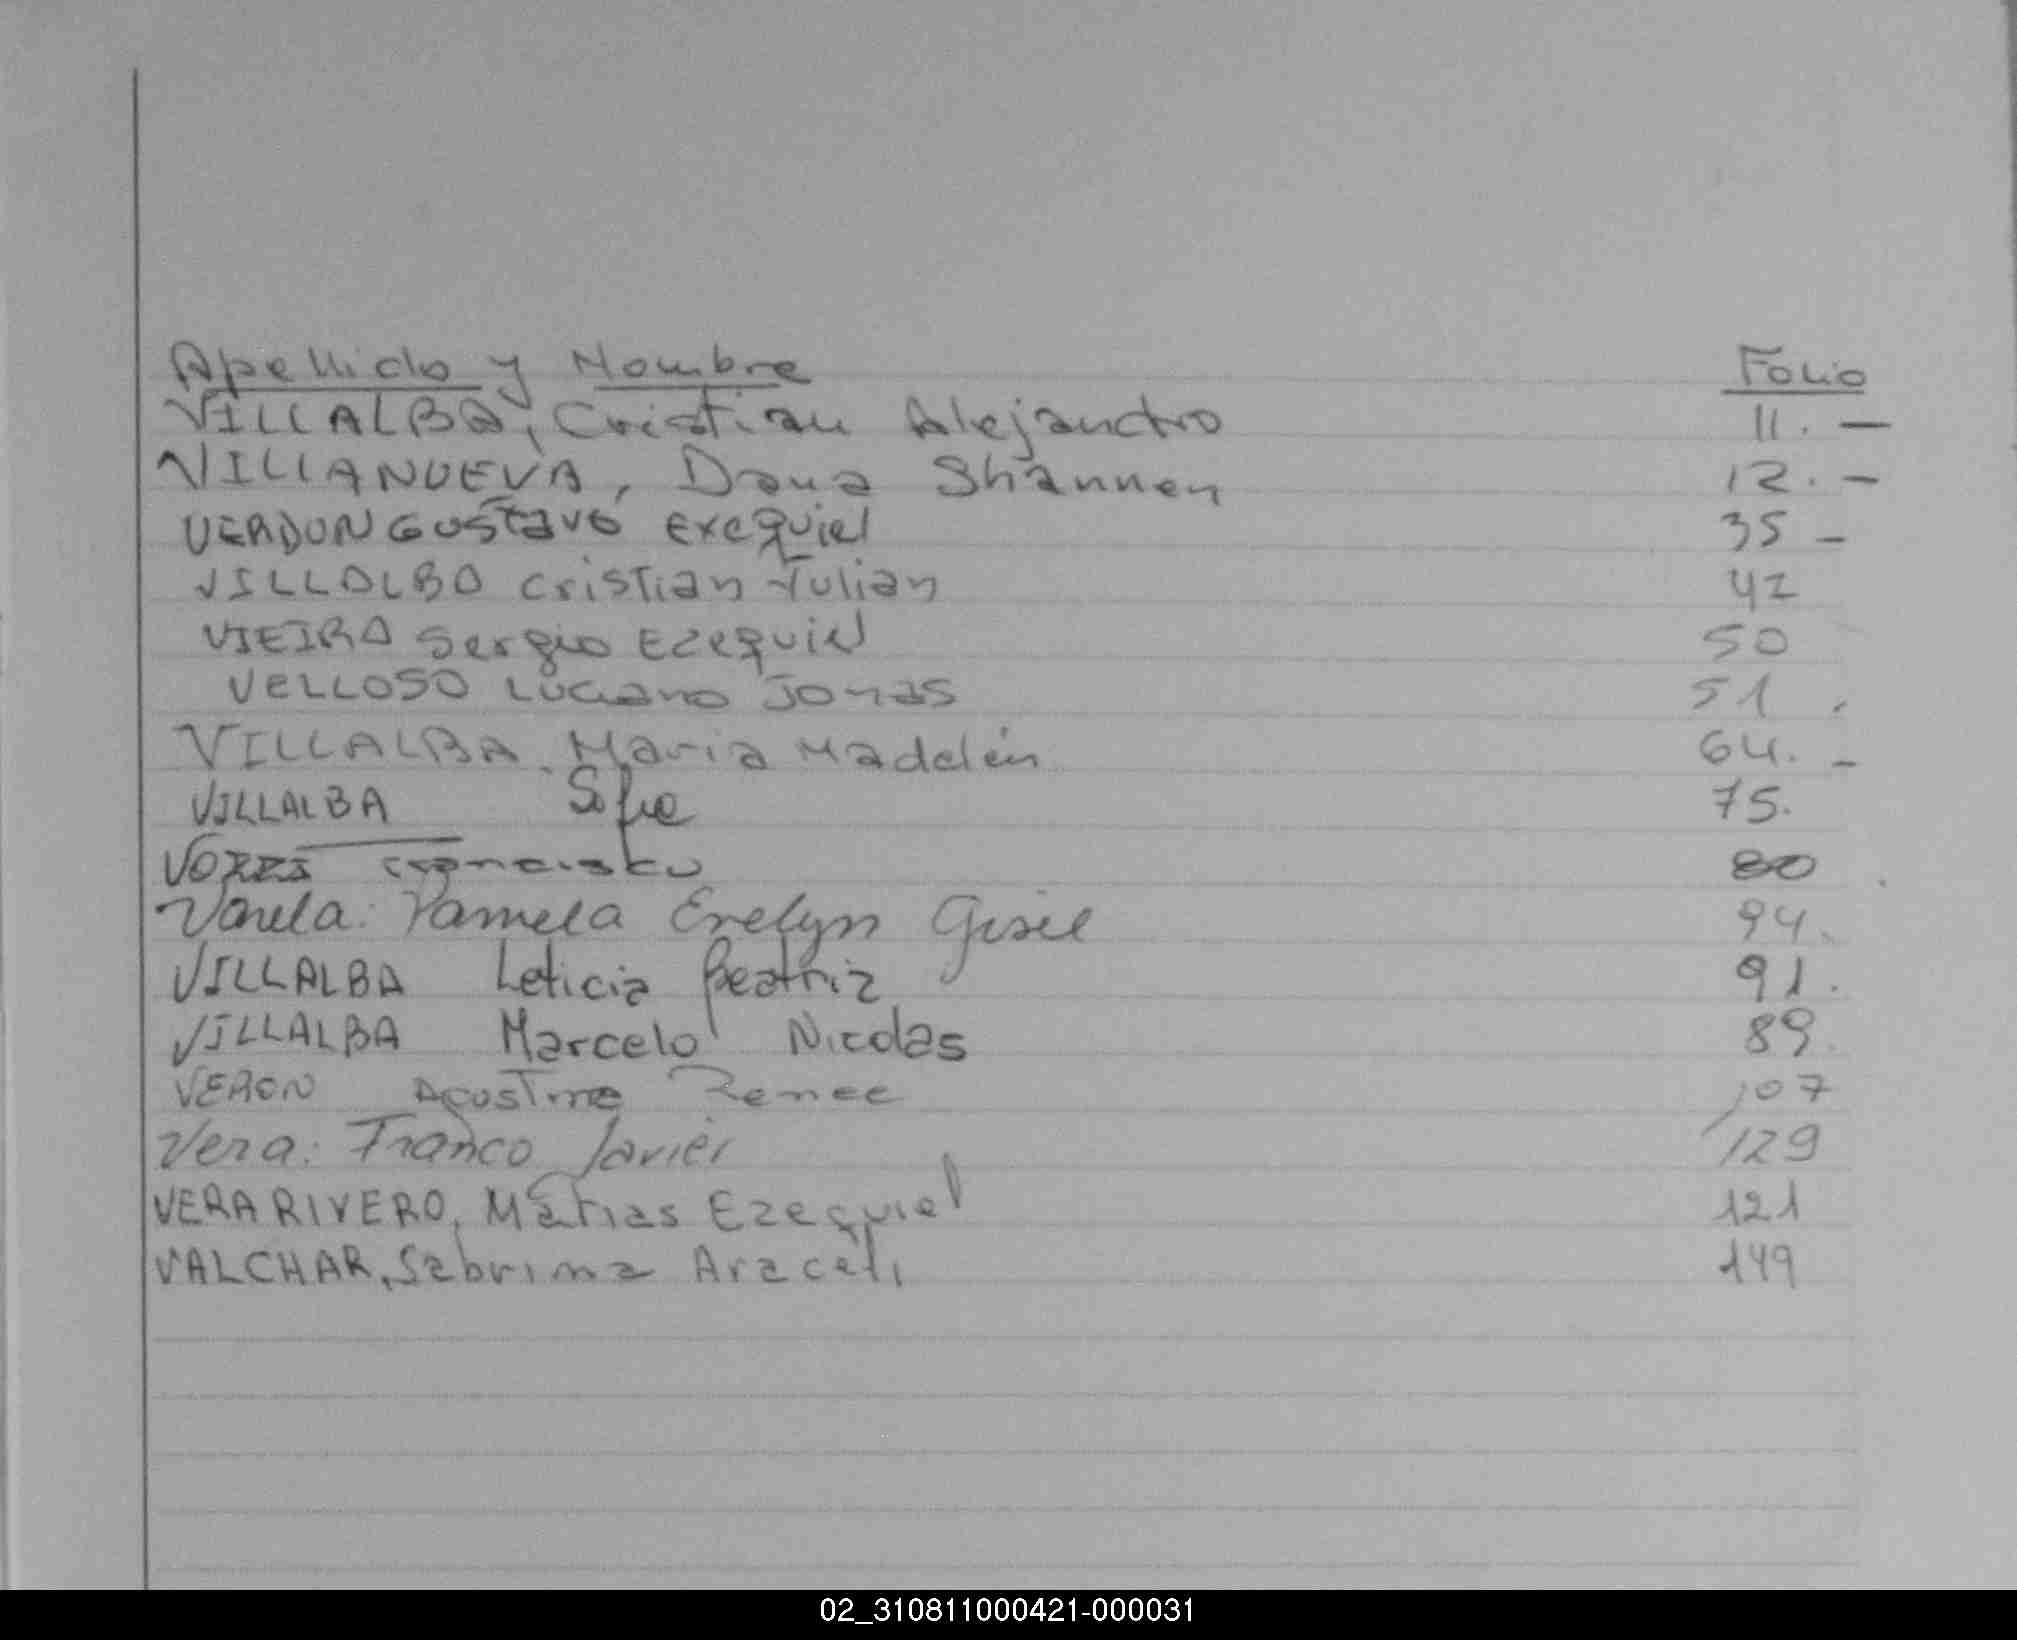 Apellido y Nombre Folio
VILLALBA, Cristian Alejandro 11. —
VILLANUEVA, Dana Shannen 12. —
VERDUN Gustavo Exequiel 35 —
VILLALBA Cristian Julian 42
VIEIRA Sergio Ezequiel 50
VELLOSO Luciano Jonas 51
VILLALBA Maria Madelén 64. —
VILLALBA Sofie 75.
80
Varela: Pamela Evelyn Gisel 94.
VILLALBA Leticia Beatriz 91.
VILLALBA Marcelo Nicolas 89.
VERON Agostina Renee 107
Vera: Franco Javier 129
VERA RIVERO, Matias Ezequiel 121
VALCHAR, Sabrina Araceli 149
02_310811000421-000031